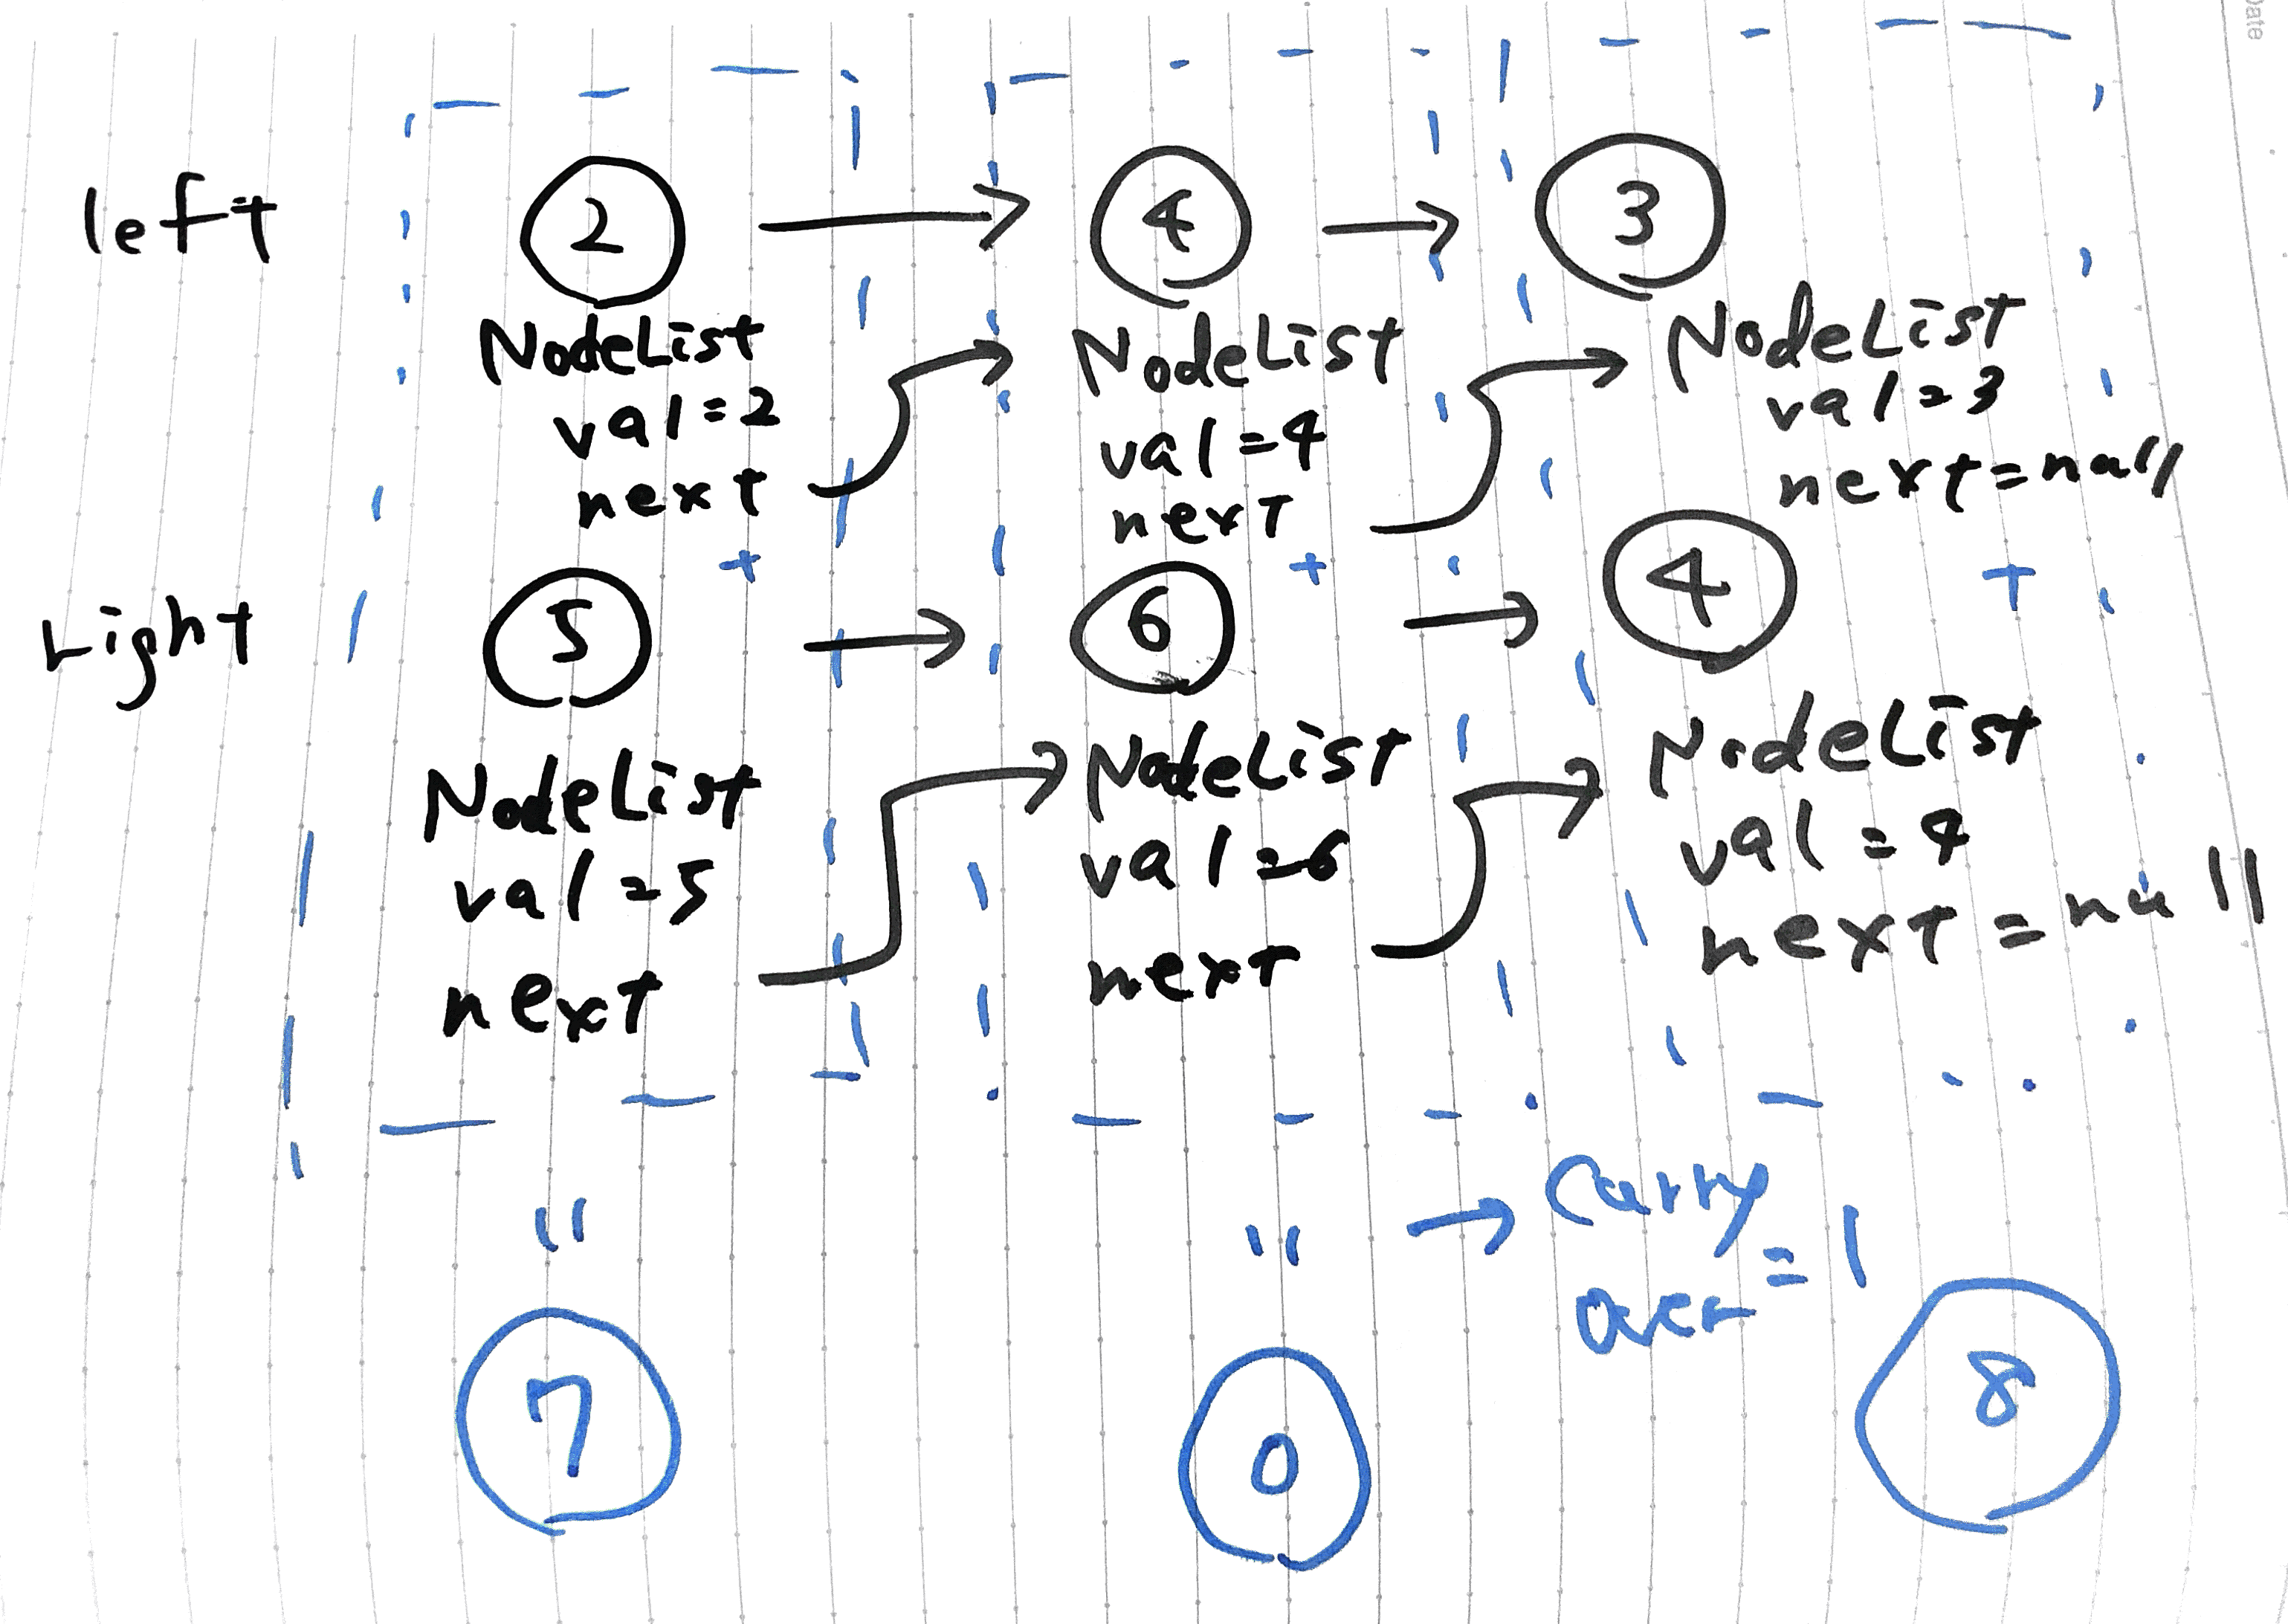 Date
left
2 → 4 → 3
NodeList
val=2
next
NodeList
val=4
next
NodeList
val=3
next=null
+ + +
right
5 → 6 → 4
NodeList
val=5
next
NodeList
val=6
next
NodeList
val=4
next=null
= = → Carry
over = 1
7 0 8